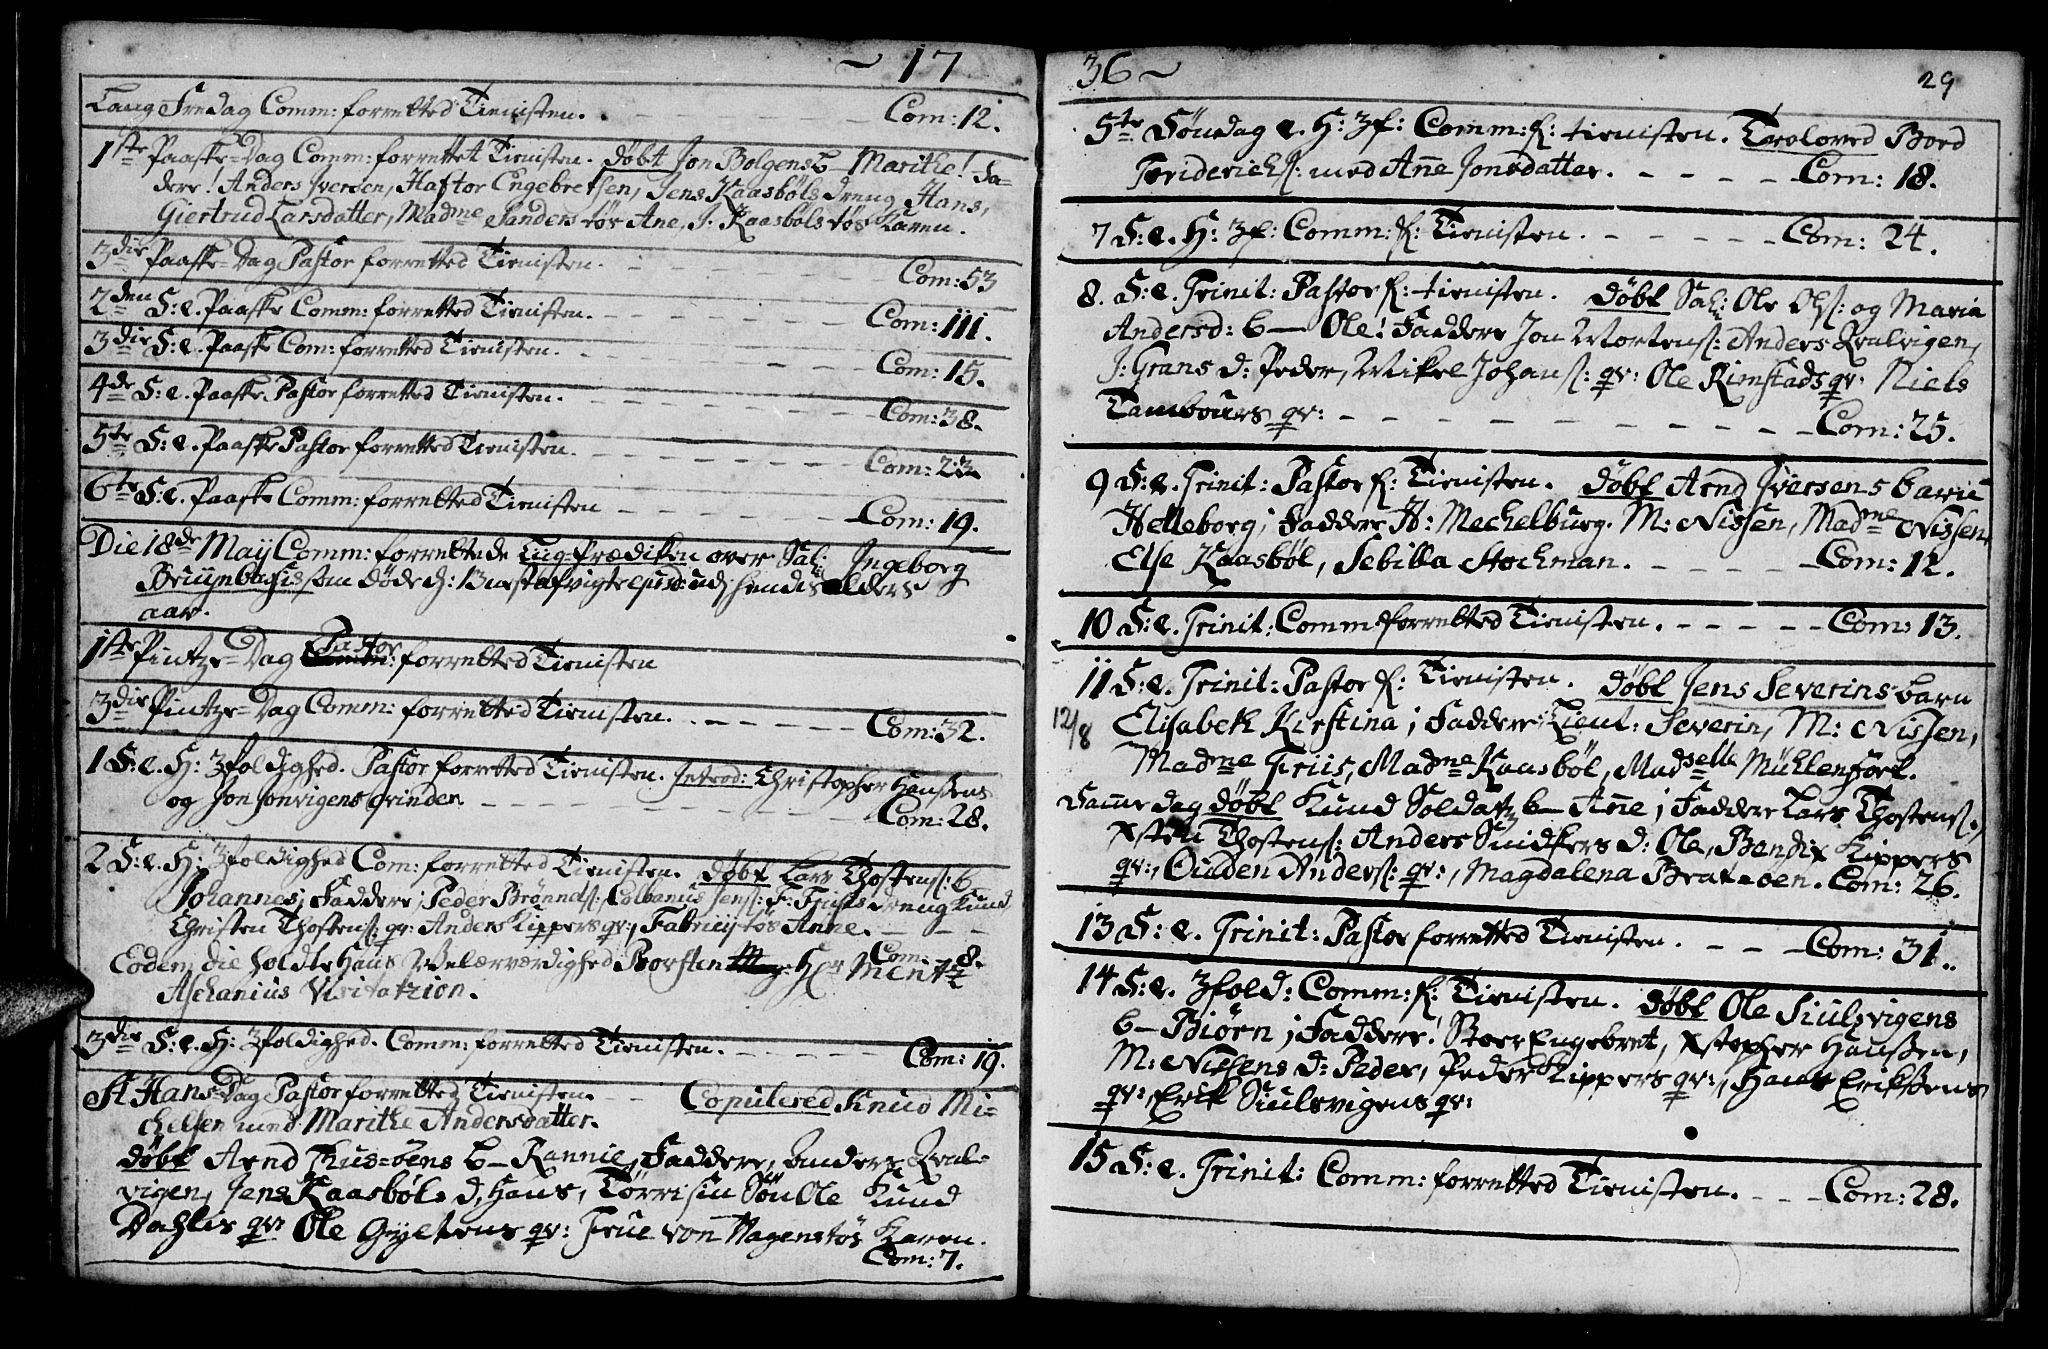 ~ 17
Lang Fredag Comm: forretted Tienisten. Com: 12.
1ste Paaske-Dag Comm: forrettet Tienisten. døbt Jon Bolgens b– Marithe! Fa-
dere! Anders Iversen, Haftor Engebretsen, Jens Kaasbøls dreng Hans,
Giertrud Larsdatter, Madme Sanders tøs Ane, J. Kaasbøls tøs Karen.
3die Paaske-Dag Pastor forretted Tienisten. Com: 53
2den S: e. Paaske Comm: forretted Tienisten. Com: 111.
3die S: e. Paaske Com: forretted Tienisten. Com: 15.
4de S: e. Paaske Pastor forretted Tienisten. Com: 38.
5te S: e. Paaske Pastor forretted Tienisten. Com:
6te S: e. Paaske Comm: forretted Tienisten Com: 19.
Die 18de May Comm: forrettede Liig-Prædiken over Sal: Ingeborg
som døde hendes alders
aar.
1ste Pintze-Dag Pastor forretted Tienisten
3die Pintze-Dag Comm: forretted Tienisten. Com: 32.
1 S: e. H: 3foldighed. Pastor forretted Tienisten. Introd: Christopher Hansens
og Jon Jonvigens qvinder Com: 28.
2 S: e. H: 3foldighed Com: forretted Tienisten. døbt Lars Thostens: b.
Johannes; Faddere; Peder Brønds: Colbanus Jens: F: Friis dreng Knud
Christen Thostens: qv: Anders Kippers qv:, Fabricii tøs Anne.
Com: 8.
Eodem die holdte Hans Velærværdighed Provsten Hr Mentz
Aschanius Visitatzion.
3die S: e. H: 3foldighed. Comm: forretted Tienisten. Com: 19.
St Hans Dag Pastor forretted Tienisten. Copulered Knud Mi-
chelsen med Marithe Andersdatter.
døbt Arnd Thus-øens b– Rannie, Faddere, Anders Qval-
vigen, Jens Kaasbøls d, Hans, Tørris Søn Ole Knud
Dahles qv: Ole Gyltens qv: Frue von Hagens tøs Karen.
Com: 7.
36 ~ 29
5te Søndag e. H: 3f: Comm: f: tienisten. Troloved Bord
Friderichs: med Ane Jonsdatter. Com: 18.
7 S: e. H: 3f: Comm: f: Tienisten. Com: 24.
8. S: e. Trinit: Pastor f: tienisten. døbt Sal: Ole Ols: og Maria
Andersd: b– Ole! Faddere Jon Mortens: Anders Qvalvigen,
J: Grans d: Peder, Mikel Johans: qv: Ole Rimstads qv: Niels
Tambours qv: Com: 25.
9 S: e. Trinit: Pastor f: Tienisten. døbt Arnd Iversens barn
Helleborg; Faddere H: Mechelburg. M: Nissen, Madme Nissen,
Else Kaasbøl, Sebilla Stochman. Com: 12.
10 S: e. Trinit: Comm: forretted Tienisten. Com: 13.
11 S: e. Trinit: Pastor f: Tienisten. døbt Jens Severins barn
12/8 Elisabek Kirstina; Faddere: Lieut: Severin, M: Nissen,
Madme Friis, Madme Kaasbøl, Madselle Mühlenfort.
Samme dag døbt Knud Soldatz b– Ane; Faddere Lars Thostens:,
Xsten Thostens: Anders Smidkers d: Ole, Bendix Kippers
qv:, Oinden Anders: qv:, Magdalena Brat-øen. Com: 26.
13 S: e. Trinit: Pastor forretted Tienisten. Com: 31.
14 S: e. 3fold: Comm: f: Tienisten. døbt Ole Siulsvigens
b– Biørn; Faddere! Stoer Engebret, Xstopher Hansen,
M: Nissens d: Peder, Peder Kippers qv:, Hans Eriksens
qv:, Erik Siulsvigens qv:
15 S: e. Trinit: Comm: forretted Tienisten. Com: 28.